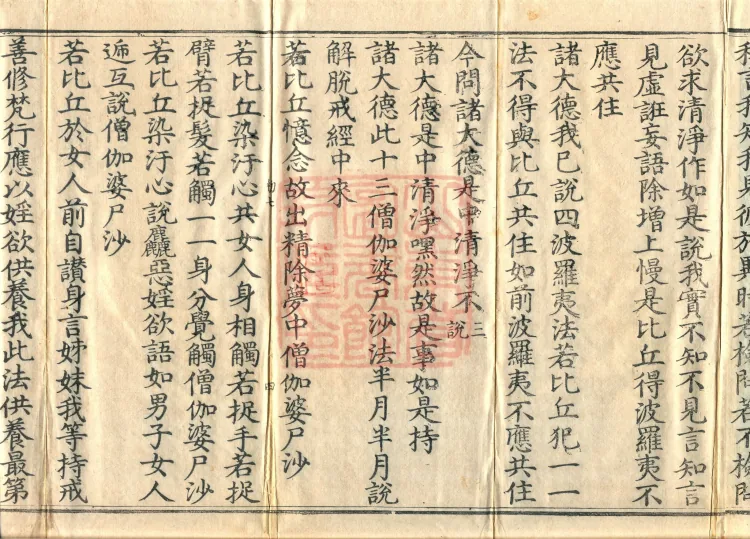 欲求清淨作如是說我實不知不見言知言
見虛誑妄語除增上慢是比丘得波羅夷不
應共住
諸大德我已說四波羅夷法若比丘犯一一
法不得與比丘共住如前波羅夷不應共住
今問諸大德是中清淨不說三
諸大德是中清淨嘿然故是事如是持
諸大德此十三僧伽婆尸沙法半月半月說
解脫戒經中來
若比丘憶念故出精除夢中僧伽婆尸沙
若比丘染汙心共女人身相觸若捉手若捉
臂若捉髮若觸一一身分覺觸僧伽婆尸沙
若比丘染汙心說麤惡婬欲語如男子女人
遞互說僧伽婆尸沙
若比丘於女人前自讚身言姊妹我等持戒
善修梵行應以婬欲供養我此法供養最第